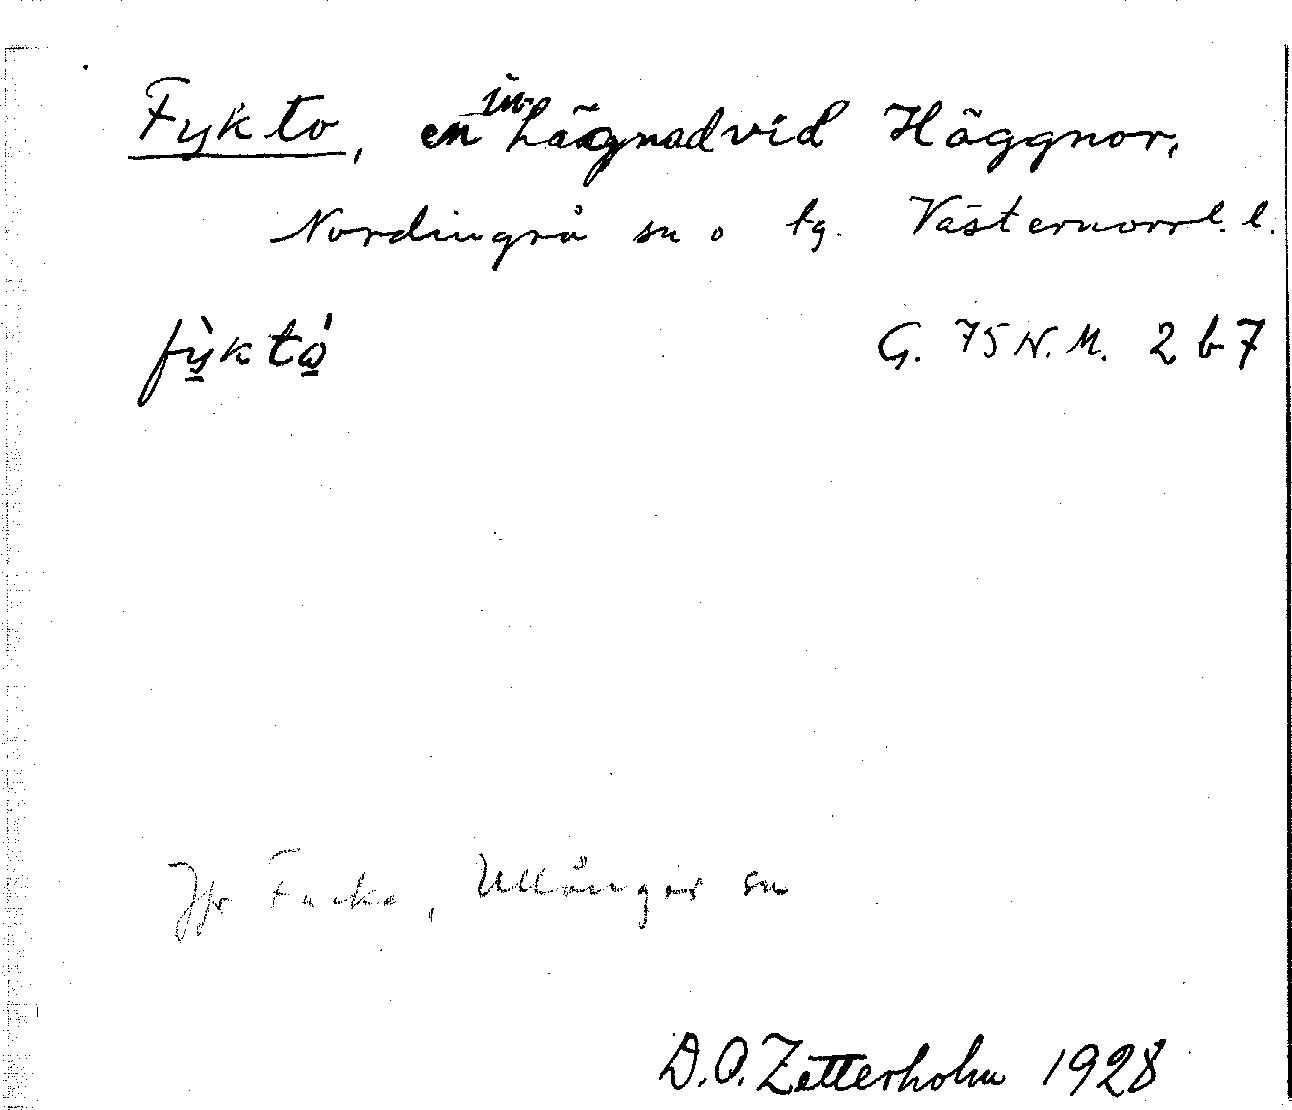 Fykto, en inhägnad vid Häggnor,
Nordingrå sn o tg. Västernorrl. l.
fỳktó̱ G. 75 N.M. 2 b 7
Jfr Fucke, Ullånger sn
D.O. Zetterholm 1928